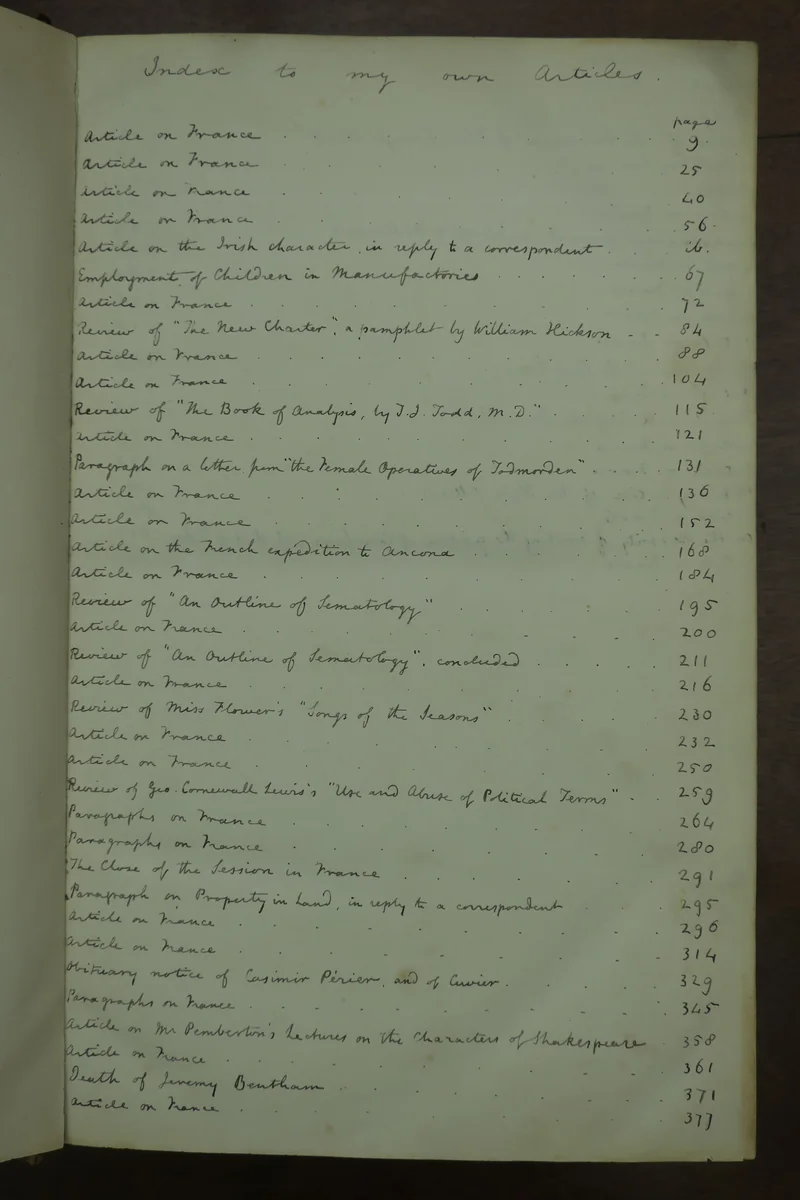 Index to my own Articles.
page
Article on France 9.
Article on France 25
Article on France 40
Article on France 56.
Article on the Irish character, in reply to a correspondent ib.
Employment of Children in Manufactories 67
Article on France 72
Review of "The New Charter", a pamphlet by William Hickson 84
Article on France 88
Article on France 104
Review of "The Book of Analysis, by T. J. Todd, M.D." 115
Article on France 121
Paragraph on a letter from "the Female Operatives of Todmorden" 131
Article on France 136
Article on France 152
Article on the French expedition to Ancona 168
Article on France 184
Review of "An Outline of Sematology" 195
Article on France 200
Review of "An Outline of Sematology", concluded 211
Article on France 216
Review of Miss Flower's "Songs of the Seasons" 230
Article on France 232
Article on France 250
Review of Geo. Cornewall Lewis's "Use and Abuse of Political Terms" 259
Paragraphs on France 264
Paragraphs on France 280
The Close of the Session in France 291
Paragraph on Property in Land, in reply to a correspondent 295
Article on France 296
Article on France 314
Obituary notice of Casimir Périer, and of Cuvier 329
Paragraphs on France 345
Article on Mr Pemberton's Lectures on the Characters of Shakespeare 358
Article on France 361
Death of Jeremy Bentham 371
Article on France 377